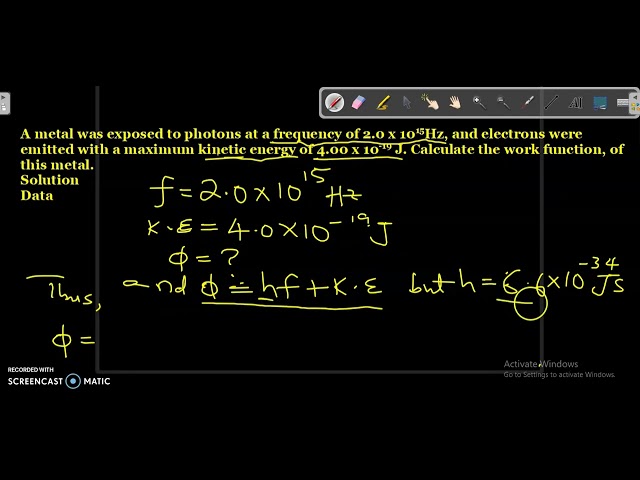 A metal was exposed to photons at a frequency of 2.0 x 10¹⁵Hz, and electrons were
emitted with a maximum kinetic energy of 4.00 x 10⁻¹⁹ J. Calculate the work function, of
this metal.
Solution
Data
f = 2.0 × 10¹⁵ Hz
K.E = 4.0 × 10⁻¹⁹ J
φ = ?
and φ = hf + K.E but h = 6.6 × 10⁻³⁴ Js
Thus,
φ =
Activate Windows
Go to Settings to activate Windows.
RECORDED WITH
SCREENCAST MATIC